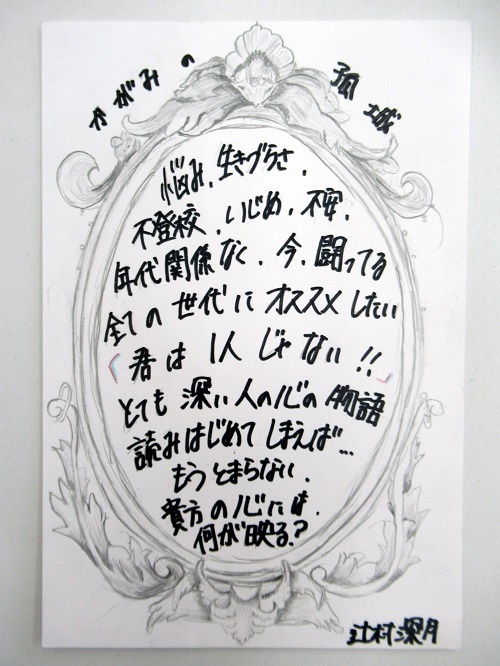 かがみの 孤城
悩み、生きづらさ、
不登校、いじめ、不安、
年代関係なく、今、闘ってる
全ての世代にオススメしたい
「君は1人じゃない!!」
とても深い人の心の物語
読みはじめてしまえば…
もうとまらない、
貴方の心には、
何が映る?
辻村深月